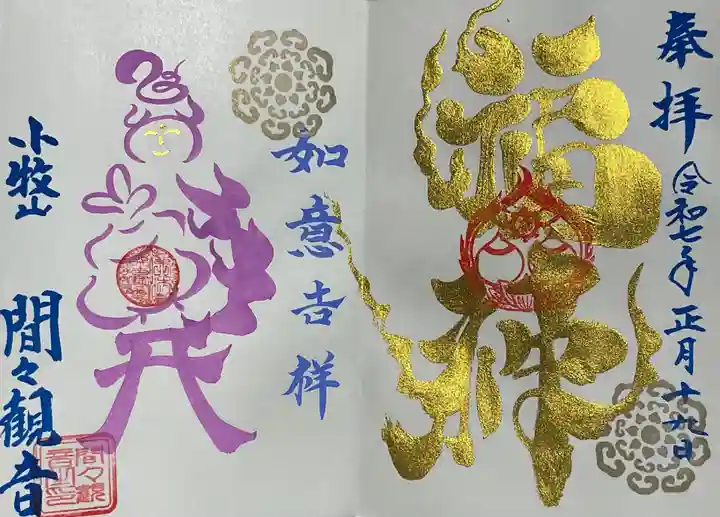 奉拝
令和七年正月十九日
福神
如意吉祥
小牧山
間々観音